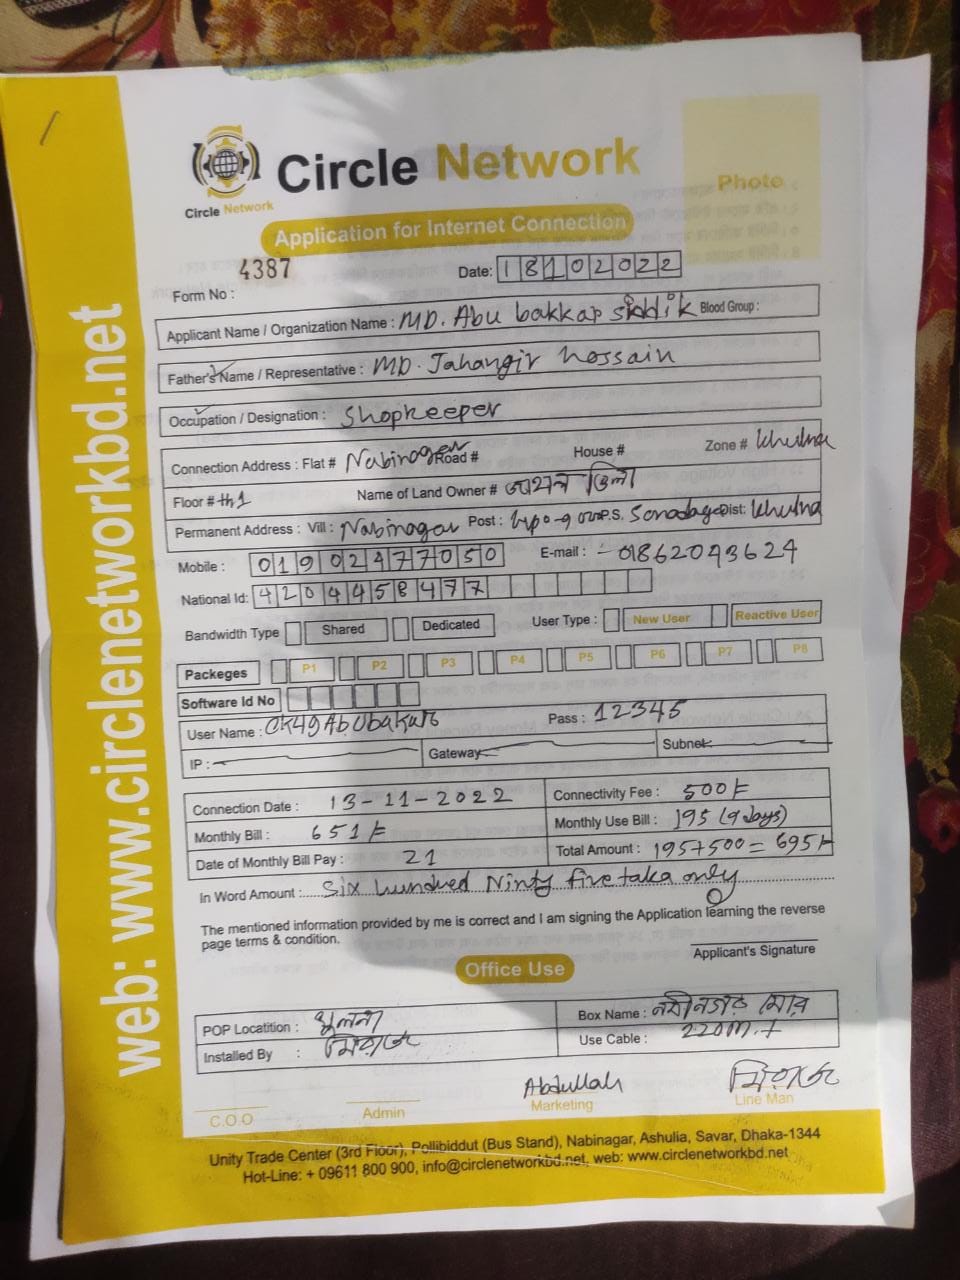 Circle Network
Circle Network
Photo
Application for Internet Connection
4387
Form No :
Date: 18102022
Applicant Name / Organization Name : MD. Abu bakkar siddik Blood Group :
Father's Name / Representative : MD. Jahangir hossain
Occupation / Designation : Shopkeeper
Connection Address : Flat # Nabinagar Road # House # Zone # Khulna
Floor # th1 Name of Land Owner # ভিলা
Permanent Address : Vill : Nabinagar Post : P.S. Sonadaga Dist: Khulna
Mobile : 01902477050 E-mail : - 01862043624
National Id: 4204458477
Bandwidth Type Shared Dedicated User Type : New User Reactive User
Packeges P1 P2 P3 P4 P5 P6 P7 P8
Software Id No
User Name : Pass : 12345
IP : Gateway Subnet
Connection Date : 13-11-2022 Connectivity Fee : 500/=
Monthly Bill : 651/= Monthly Use Bill : 195 (9 days)
Date of Monthly Bill Pay : 21 Total Amount : 195+500= 695/=
In Word Amount : Six hundred Ninty five taka only
The mentioned information provided by me is correct and I am signing the Application learning the reverse
page terms & condition.
Applicant's Signature
Office Use
POP Locatition : খুলনা Box Name : মোর
Installed By : মিরাজ Use Cable : 220m
C.O.O Admin Abdullah Marketing মিরাজ Line Man
Unity Trade Center (3rd Floor), Pollibiddut (Bus Stand), Nabinagar, Ashulia, Savar, Dhaka-1344
Hot-Line: + 09611 800 900, info@circlenetworkbd.net, web: www.circlenetworkbd.net
web: www.circlenetworkbd.net